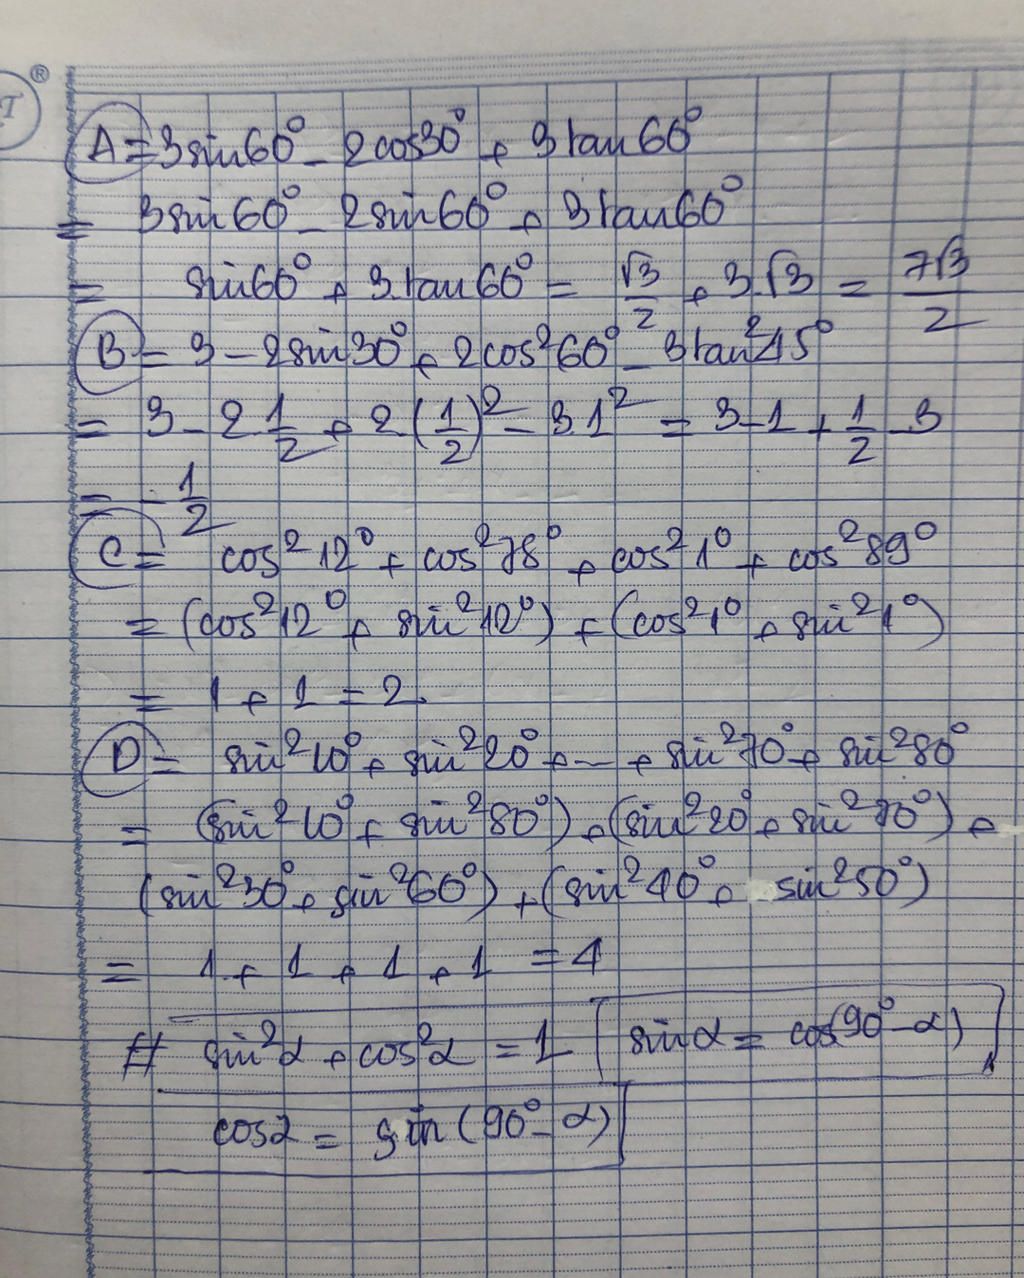 ®
A = 3sin60° - 2cos30° + 3tan60°
= 3sin60° - 2sin60° + 3tan60°
= sin60° + 3.tan60° = √3/2 + 3.√3 = 7√3/2
B = 3 - 2sin30° + 2cos²60° - 3tan²45°
= 3 - 2 1/2 + 2(1/2)² - 3.1² = 3-1 + 1/2 - 3
= - 1/2
C = cos²12° + cos²78° + cos²1° + cos²89°
= (cos²12° + sin²12°) + (cos²1° + sin²1°)
= 1 + 1 = 2
D = sin²10° + sin²20° + ... + sin²70° + sin²80°
= (sin²10° + sin²80°) + (sin²20° + sin²70°) +
(sin²30° + sin²60°) + (sin²40° + sin²50°)
= 1 + 1 + 1 + 1 = 4
# sin²α + cos²α = 1 sinα = cos(90° - α)
cosα = sin(90° - α)